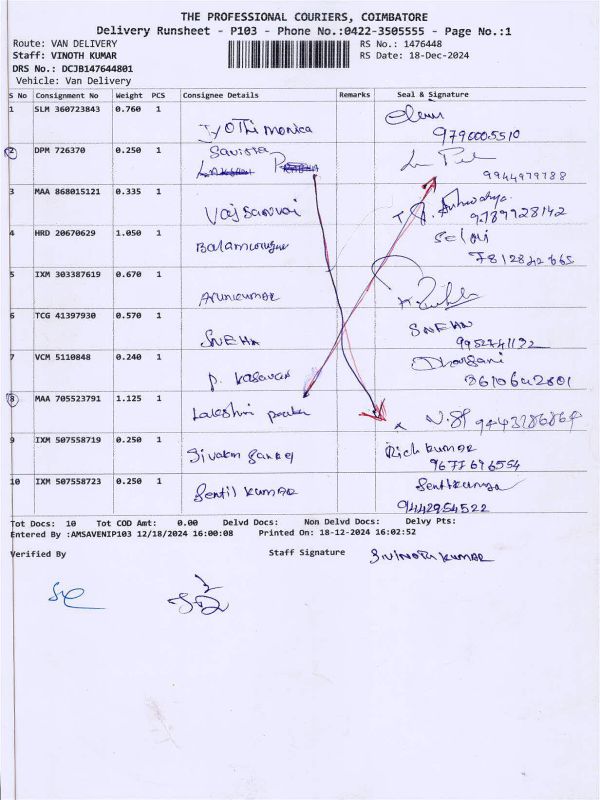 THE PROFESSIONAL COURIERS, COIMBATORE
Delivery Runsheet - P103 - Phone No.:0422-3505555 - Page No.:1
Route: VAN DELIVERY RS No.: 1476448
Staff: VINOTH KUMAR RS Date: 18-Dec-2024
DRS No.: DCJB147644801
Vehicle: Van Delivery
S No Consignment No Weight PCS Consignee Details Remarks Seal & Signature
1 SLM 360723843 0.760 1 Jyothi monica
9790005510
2 DPM 726370 0.250 1 Savista
9944979788
3 MAA 868015121 0.335 1
9789928142
4 HRD 20670629 1.050 1 Balamurugan Selvi
7812842665
5 IXM 303387619 0.670 1 Arunkumar
6 TCG 41397930 0.570 1 SNEHA SNEHA
9952741172
7 VCM 5110848 0.240 1 P. Kesavan Dharsani
8 MAA 705523791 1.125 1 Lakshmi
9 IXM 507558719 0.250 1
9677676554
10 IXM 507558723 0.250 1 Sentil kumar
9442954522
Tot Docs: 10 Tot COD Amt: 0.00 Delvd Docs: Non Delvd Docs: Delvy Pts:
Entered By :AMSAVENIP103 12/18/2024 16:00:08 Printed On: 18-12-2024 16:02:52
Verified By Staff Signature S.VINOTH KUMAR